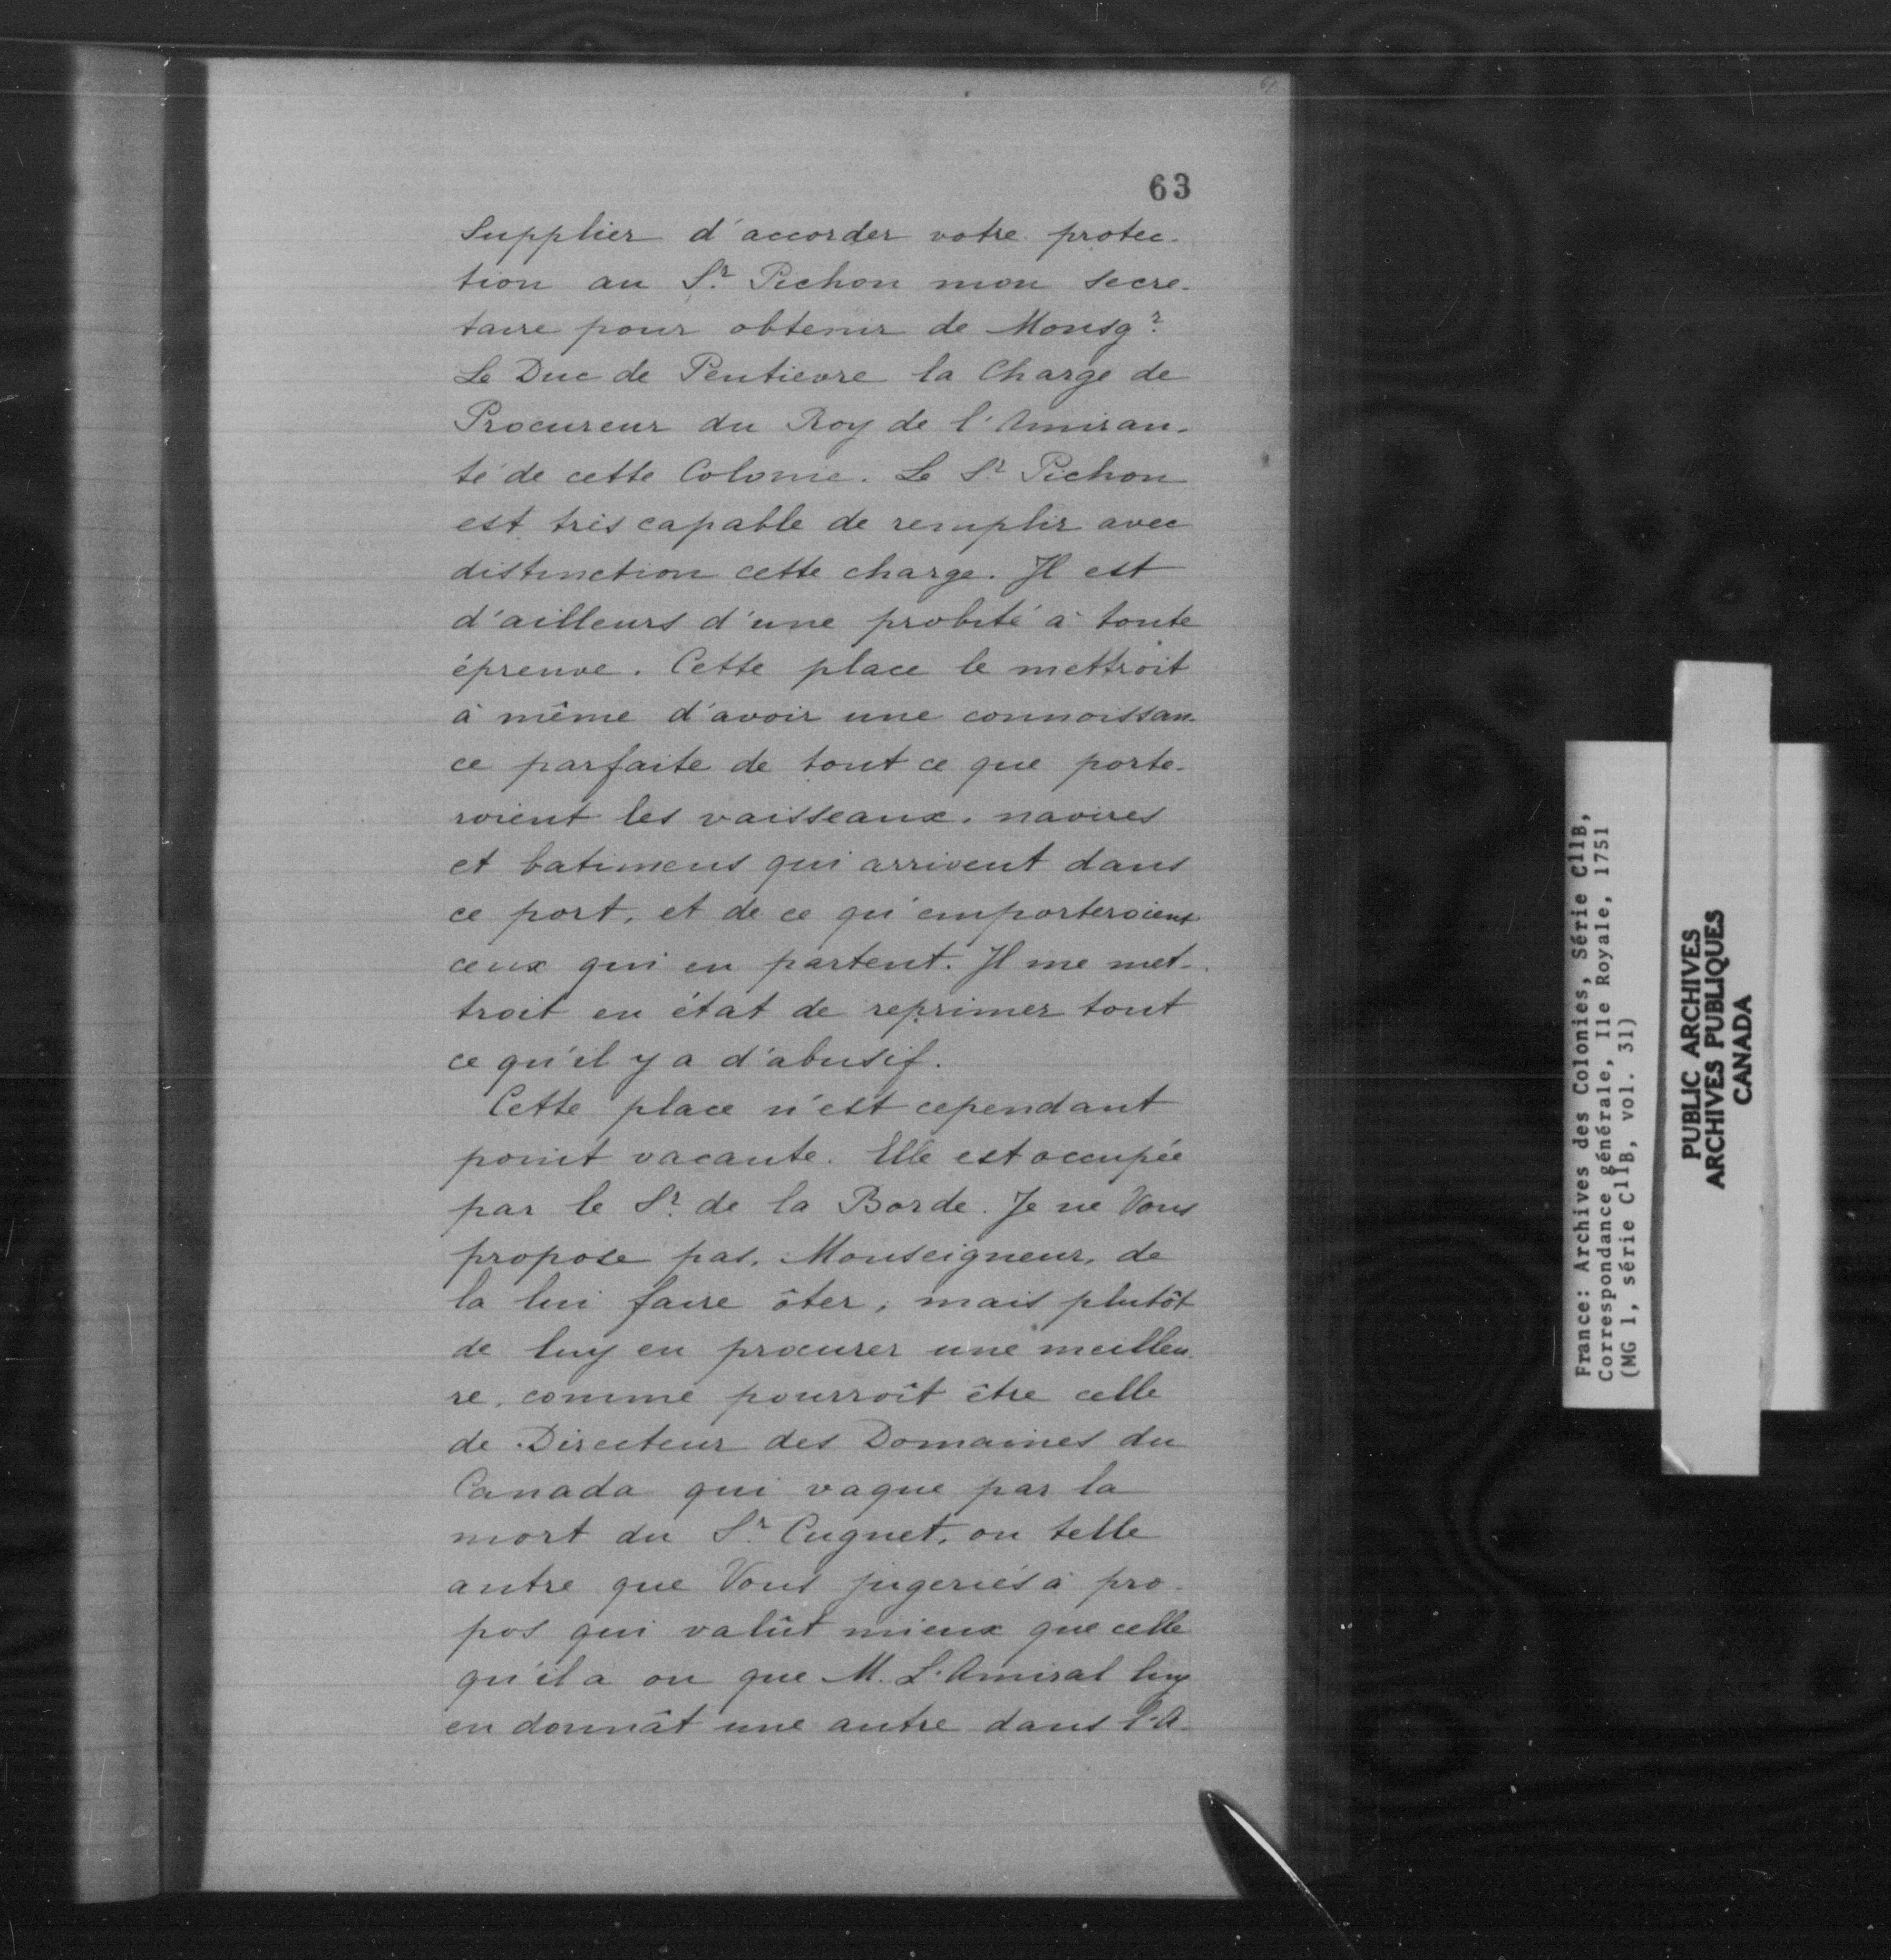 63
Supplier d'accorder votre protec-
tion au Sr. Pichon mon secre-
taire pour obtenir de Monsgr.
Le Duc de Pentievre la Charge de
Procureur du Roy de l'Amirau-
té de cette Colonie. Le Sr. Pichon
est tres capable de remplir avec
distinction cette charge. Il est
d'ailleurs d'une probité à toute
épreuve. Cette place le mettroit
à même d'avoir une connoissan-
ce parfaite de tout ce que porte-
roient les vaisseaux, navires
et batimens qui arrivent dans
ce port, et de ce qu'emporteroient
ceux qui en partent. Il me met-
troit en état de reprimer tout
ce qu'il y a d'abusif.
Cette place n'est cependant
point vacante. Elle est occupée
par le Sr. de la Borde. Je ne Vous
propose pas, Monseigneur, de
la lui faire ôter, mais plutôt
de luy en procurer une meilleu-
re, comme pourroît être celle
de Directeur des Domaines du
Canada qui vaque par la
mort du Sr. Cugnet, ou telle
autre que Vous jugeriés à pro-
pos qui valût mieux que celle
qu'il a ou que M. L'Amiral luy
en donnât une autre dans l'A-
France: Archives des Colonies, Série C11B,
Correspondance générale, Ile Royale, 1751
(MG 1, série C11B, vol. 31)
PUBLIC ARCHIVES
ARCHIVES PUBLIQUES
CANADA